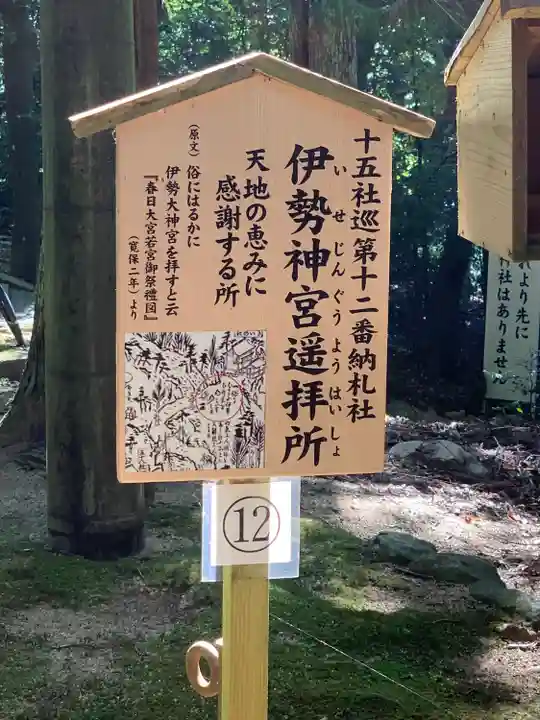 十五社巡第十二番納札社
伊勢神宮遥拝所
いせじんぐうようはいしょ
天地の恵みに
感謝する所
(原文)俗にはるかに
伊勢大神宮を拝すと云
『春日大宮若宮御祭禮図』
(寛保二年)より
12
れより先に
社はありません